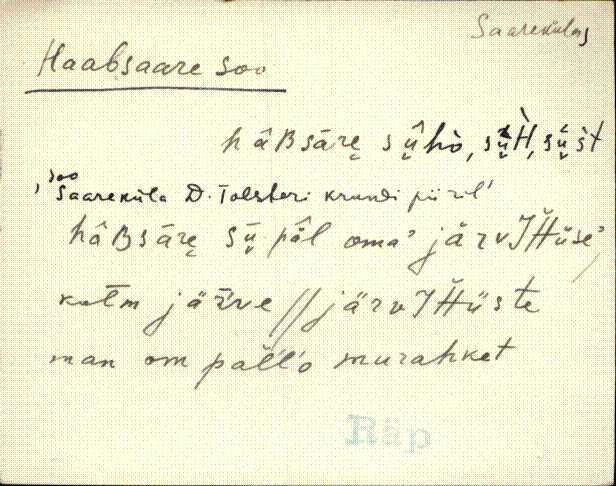 Saarekülas
Haabsaare soo
hâBsārę sṷ̂hò, sṷ̀H̀, sṷ́śt
, soo Saareküla D. Tolsteri krundi piiril'
hâBsārę sṷ̄ pâl oma' järvJH̆üse'
kolm järve // järvJH̆üste
man om pall'l'o murahket
Räp